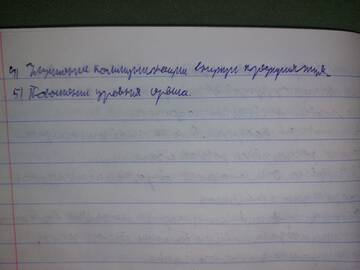 4) Улучшение коммуникации внутри предприятия.
5) Повышение уровня